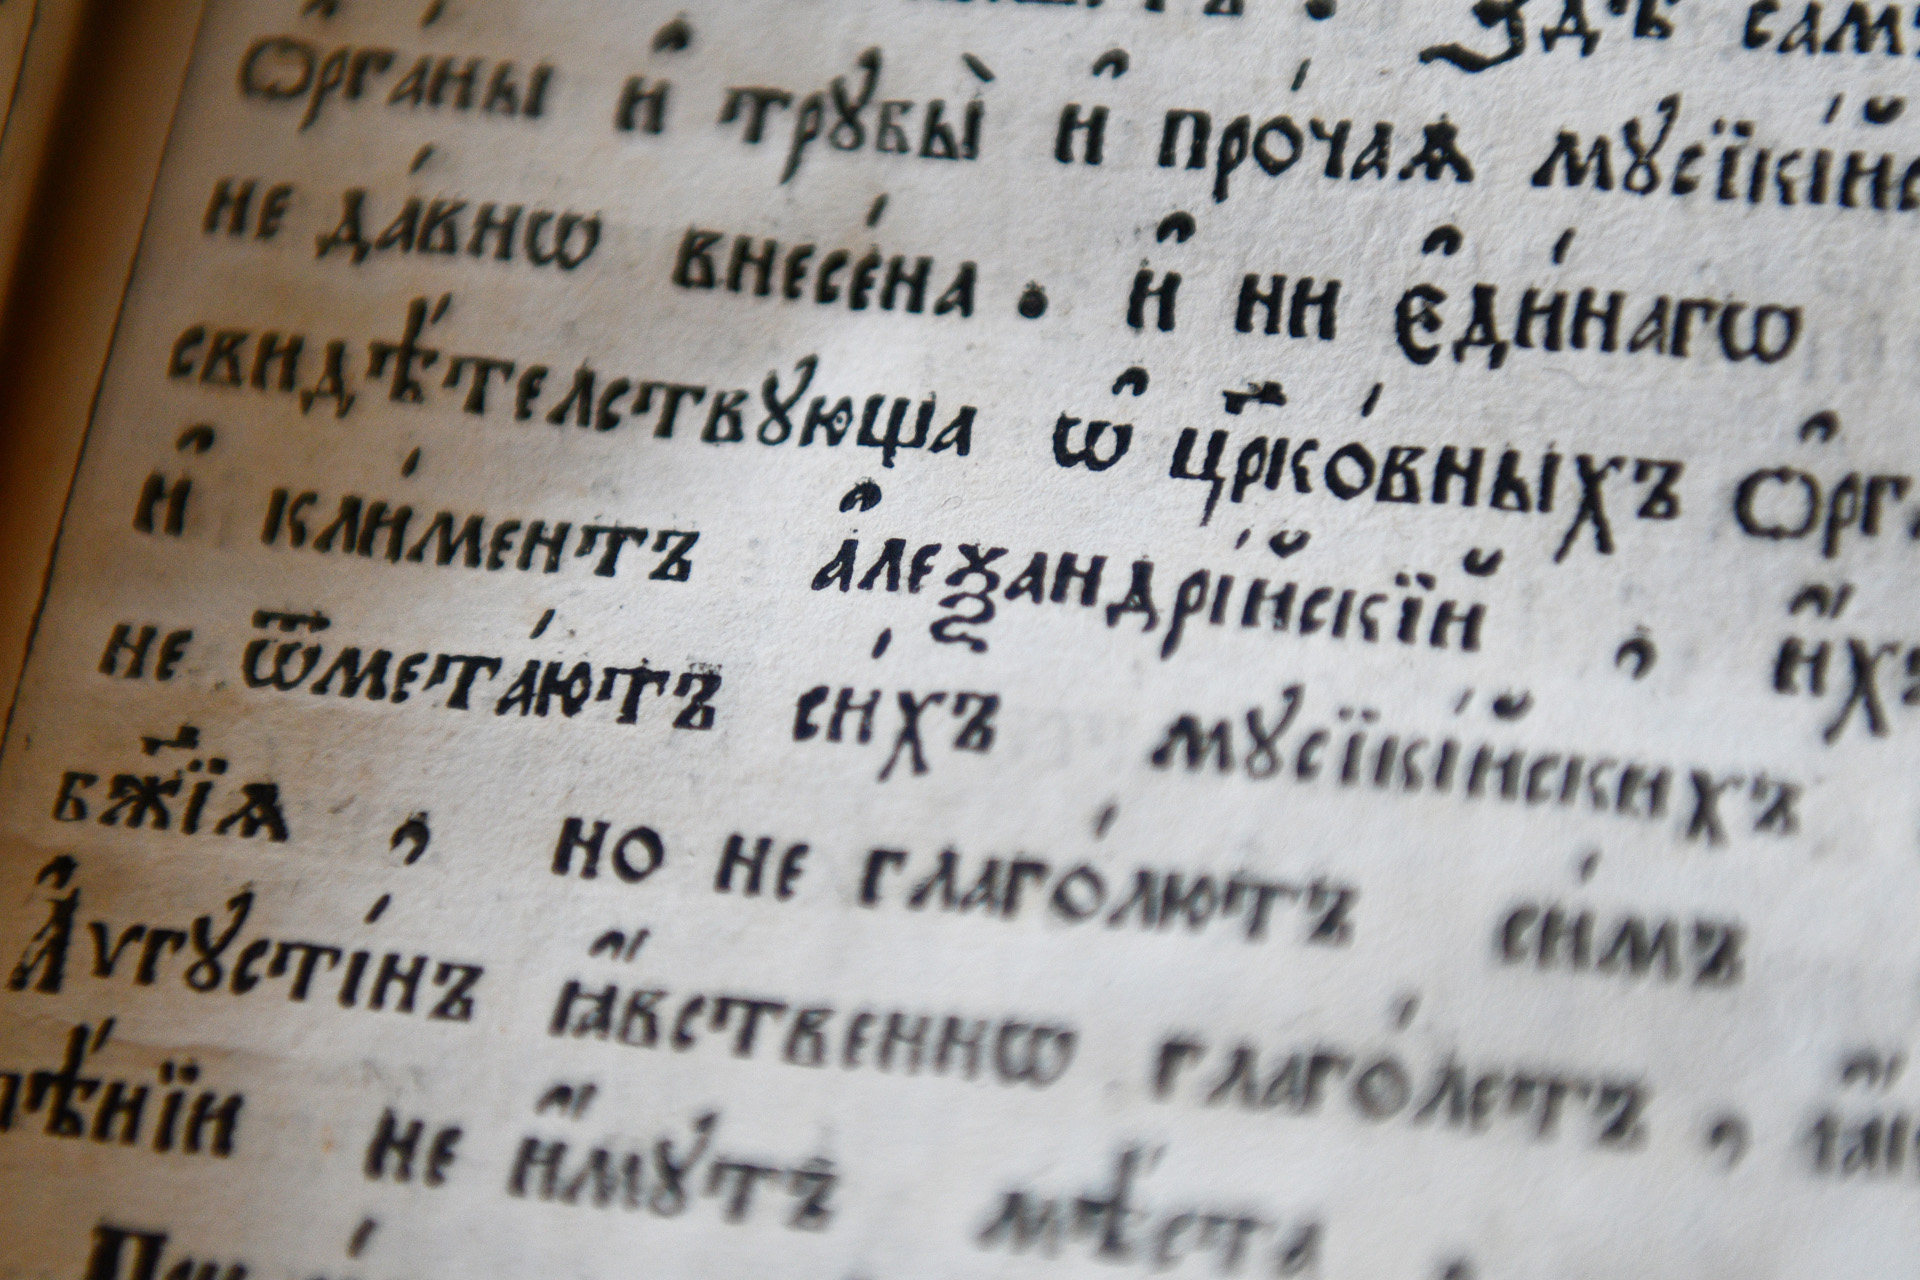 Здѣ
ѻ҆рга́ны и҆ трꙋбы̀ и҆ про́чаѧ
не да́внѡ внесе́на . и҆ ни є҆ди́нагѡ
свидѣ́телствꙋюща ѡ҆ цр҃ко́вныхъ
и҆ кли́ментъ а҆леѯандрі́йскїй ,
не ѿмета́ютъ си́хъ мꙋсїкі́йскихъ
бж҃їѧ , но не глаго́лютъ си́мъ
А҆ѵгꙋсті́нъ ꙗ҆́вственнѡ глаго́летъ ,
не и҆́мꙋтъ мѣ́ста